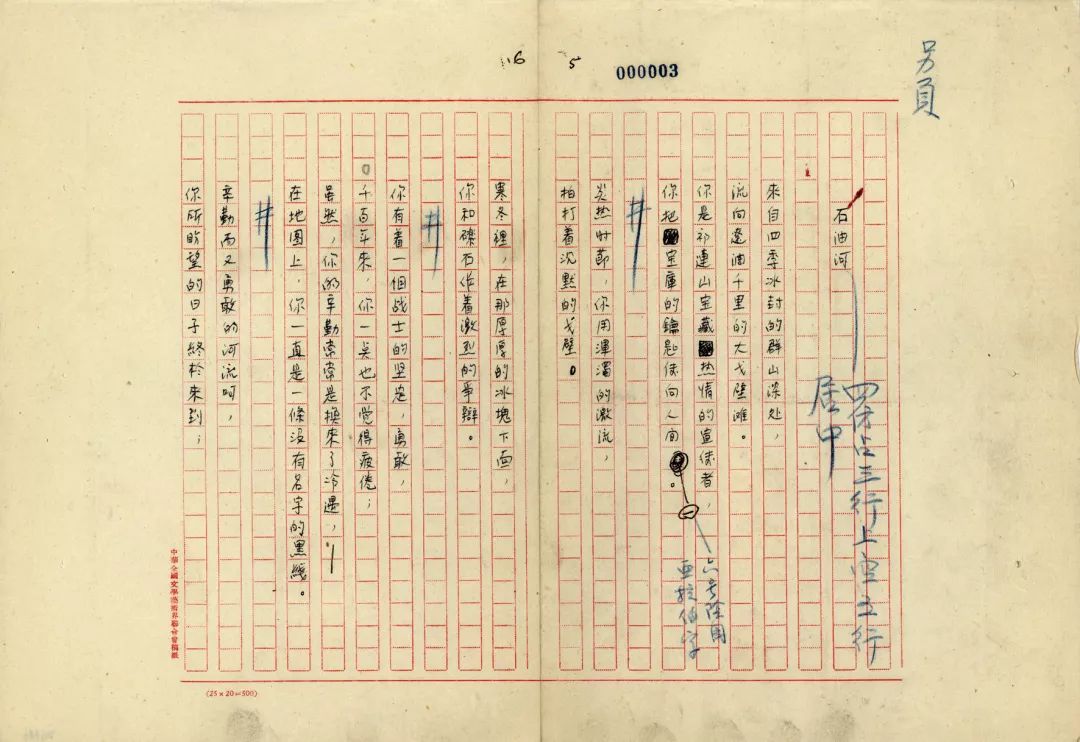 16
5
000003
另頁
四仿占三行上空五行
居中
石油河
來自四季冰封的群山深处，
流向遼油千里的大戈壁滩。
你是祁連山宝藏热情的宣使者，
你把宝庫的鑰匙使向人间。
㊀
六号阴圈
亚拉伯字
炎热时節，你用渾濁的激流，
拍打着沉默的戈壁。
寒冬裡，在那厚厚的冰塊下面，
你和礫石作着激烈的爭辯。
你有着一個战士的坚忠，勇敢，
千百年来，你一点也不覺得疲倦；
虽然，你的辛勤常常是换來了冷遇，
在地图上，你一直是一條没有名字的黑綫。
辛勤而又勇敢的河流呵，
你所盼望的日子終於來到；
中華全國文學藝術界聯合會稿紙
(25×20=500)